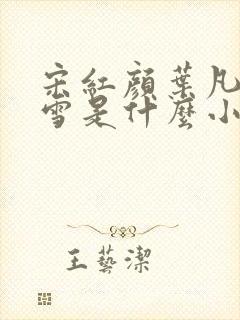 宋紅顏葉凡
雪是什麼小
王藝潔